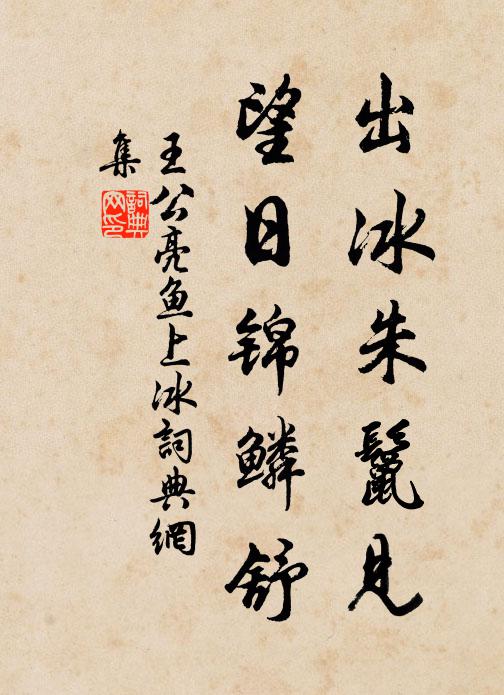 出冰朱鬣见
望日锦鳞舒
王公亮鱼上冰詞典網
集
詞典
网印